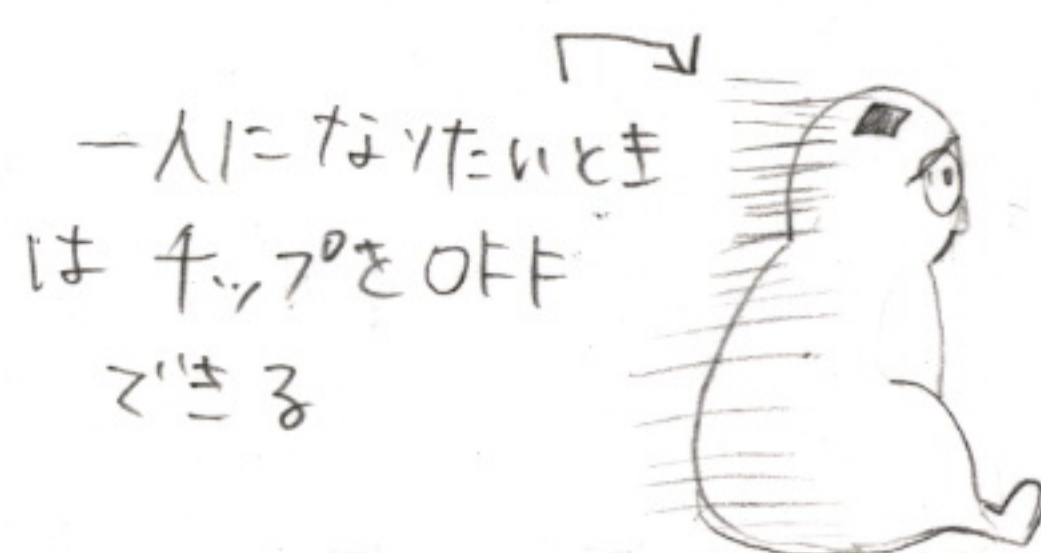 一人になりたいとき
は チップをOFF
できる